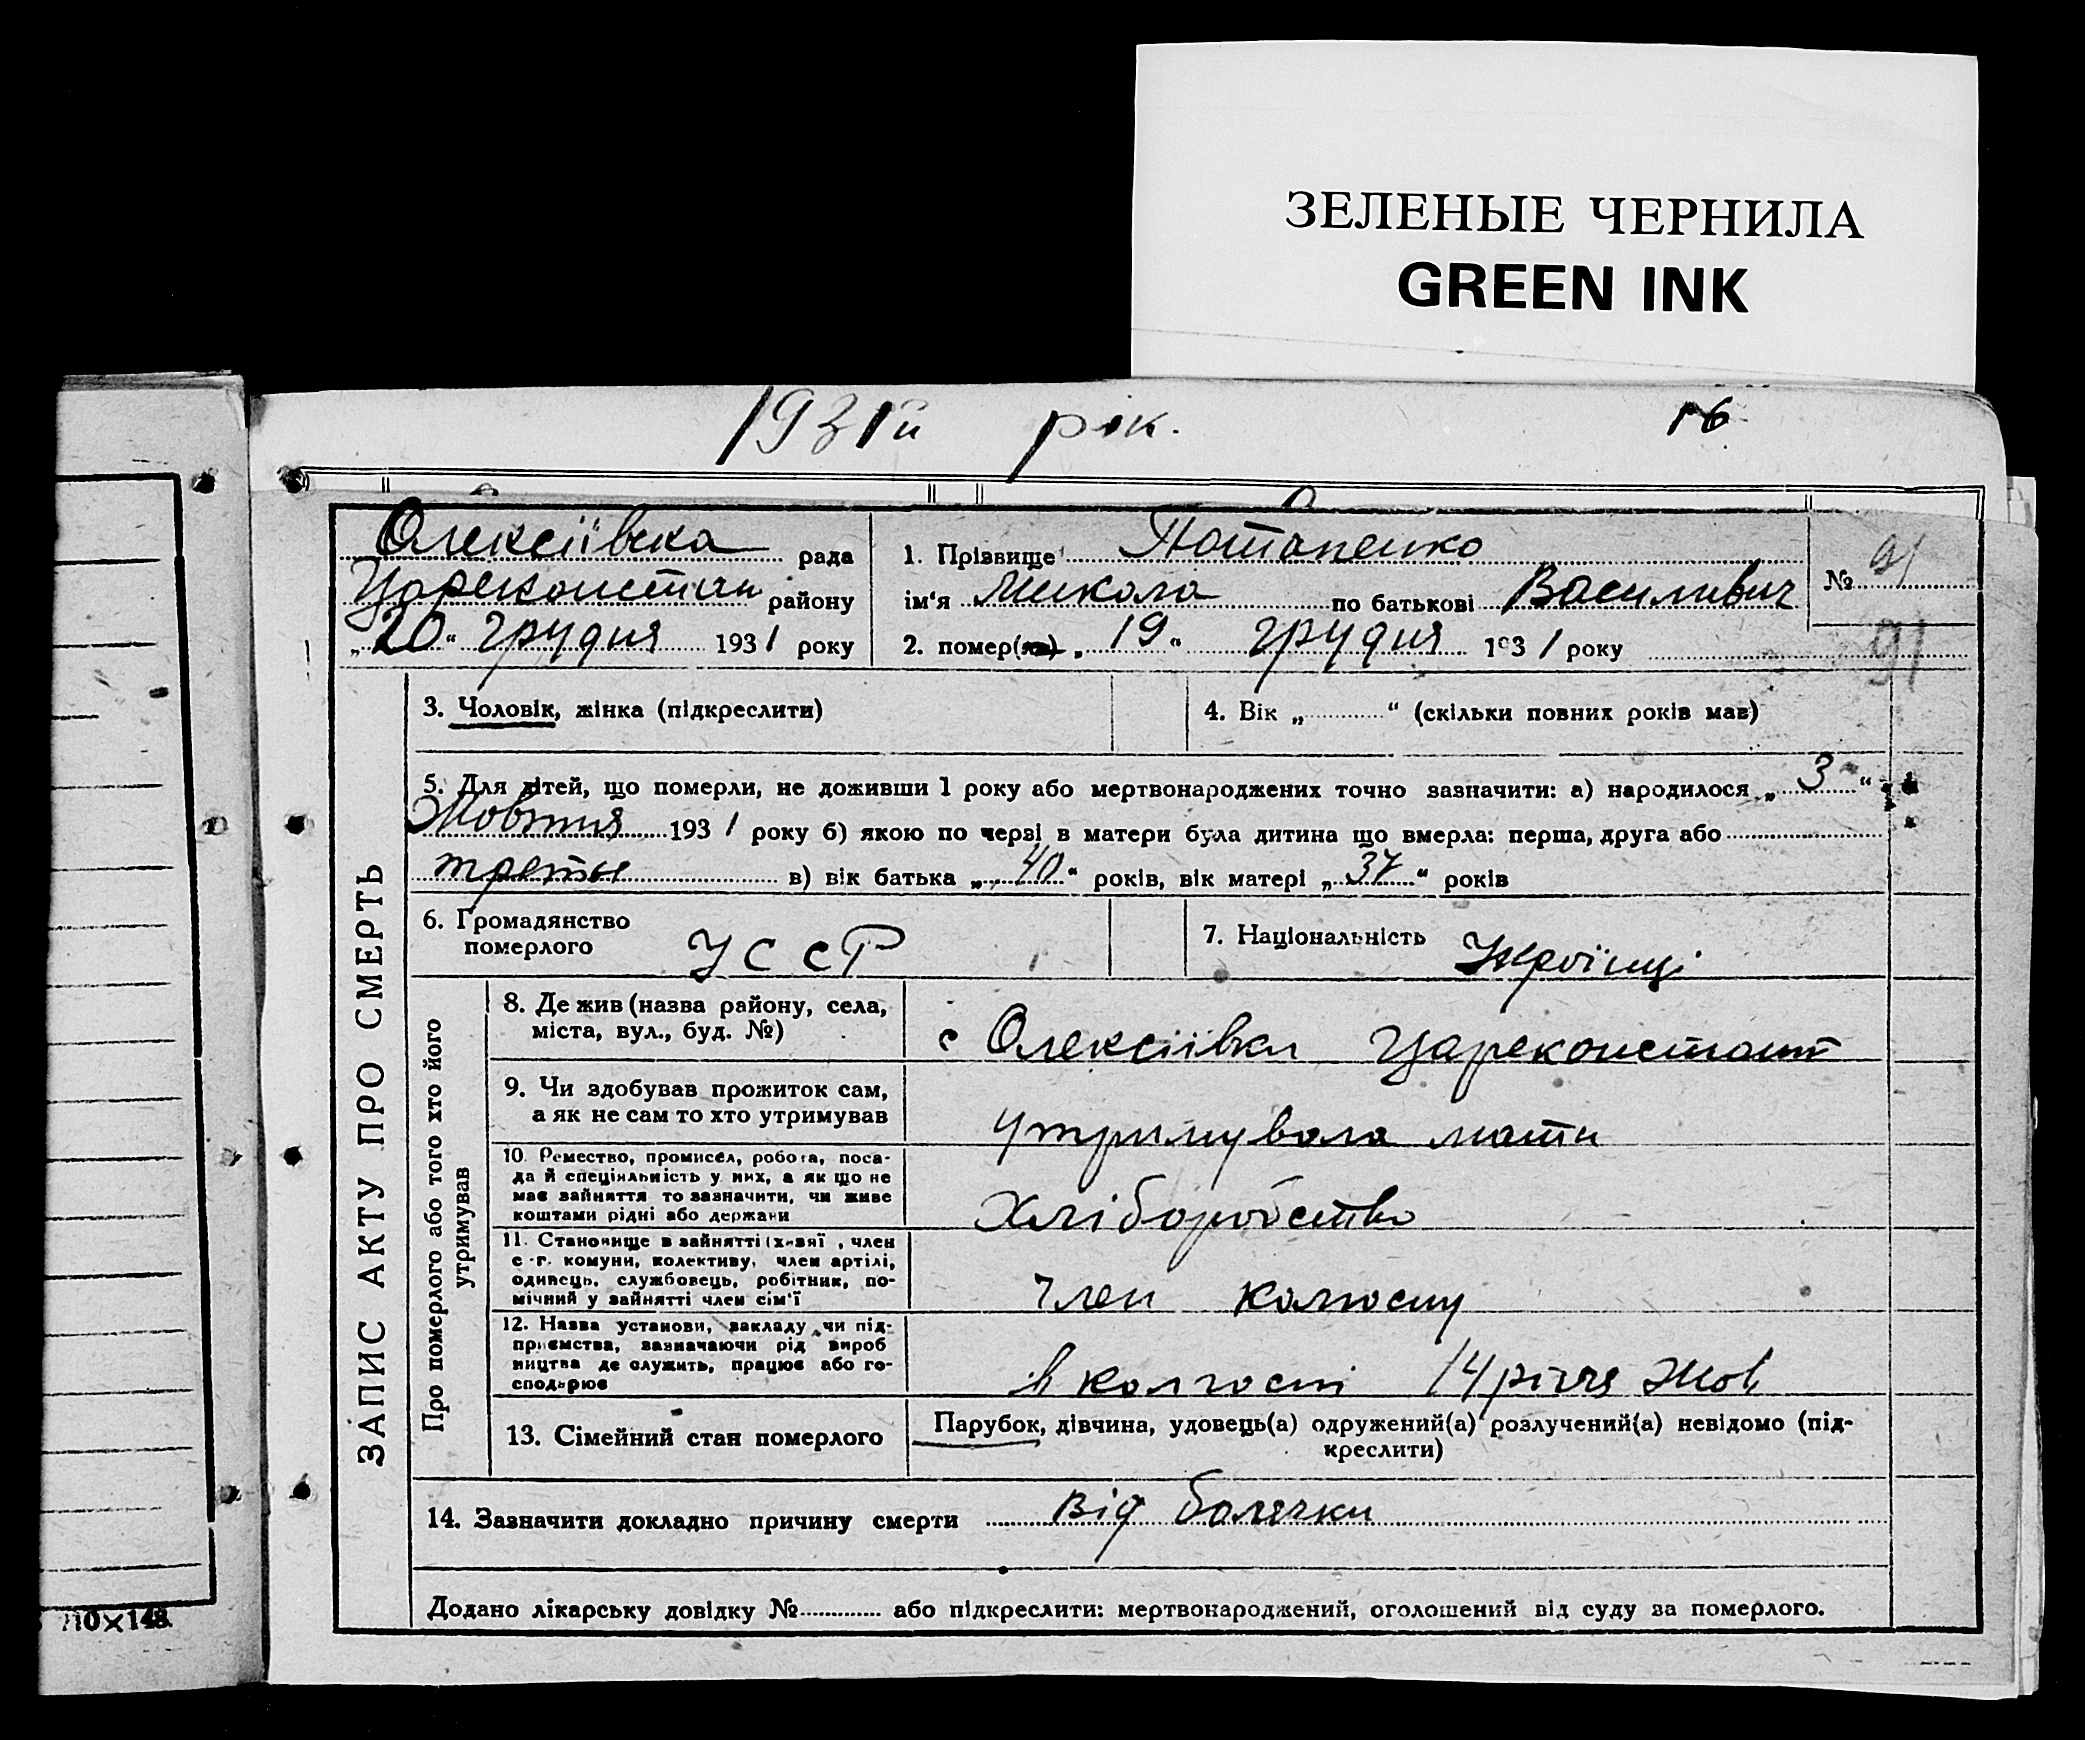 ЗЕЛЕНЫЕ ЧЕРНИЛА
GREEN INK
1931й рік.
16
Олексіївска рада
Цареконстан району
„20“ грудня 1931 року
1. Прізвище Потапенко
ім‘я Микола по батькові Василивич
2. помер(ла) „19“ грудня 1931 року
№ 91
91
ЗАПИС АКТУ ПРО СМЕРТЬ
3. Чоловік, жінка (підкреслити)
4. Вік „ “ (скільки повних років мав)
5. Для дітей, що померли, не доживши 1 року або мертвонароджених точно зазначити: а) народилося „3“
Жовтня 1931 року б) якою по черзі в матери була дитина що вмерла: перша, друга або
третя в) вік батька „40“ років, вік матері „37“ років
6. Громадянство
померлого УССР
7. Національність Україці
Про померлого або того хто його
утримував
8. Де жив (назва району, села,
міста, вул., буд. №)
с Олексіївки Цареконстант
9. Чи здобував прожиток сам,
а як не сам то хто утримував
утримувала мати
10. Ремество, промисел, робота, поса-
да й спеціяльність у них, а як що не
має зайняття то зазначити, чи живе
коштами рідні або держави
Хліборобство
11. Становище в зайнятті (х-зяї , член
с.-г. комуни, колективу, член артілі,
одинець, службовець, робітник, по-
мічний у зайнятті член сім‘ї
член колгоспу
12. Назва установи, закладу чи під-
приємства, зазначаючи рід вироб
ництва де служить, працює або го-
сподарює
в колгоспі 14 річчя Жов
13. Сімейний стан померлого
Парубок, дівчина, удовець(а) одружений(а) розлучений(а) невідомо (під-
креслити)
14. Зазначити докладно причину смерти від болячки
Додано лікарську довідку № або підкреслити: мертвонароджений, оголошений від суду за померлого.
210×148.